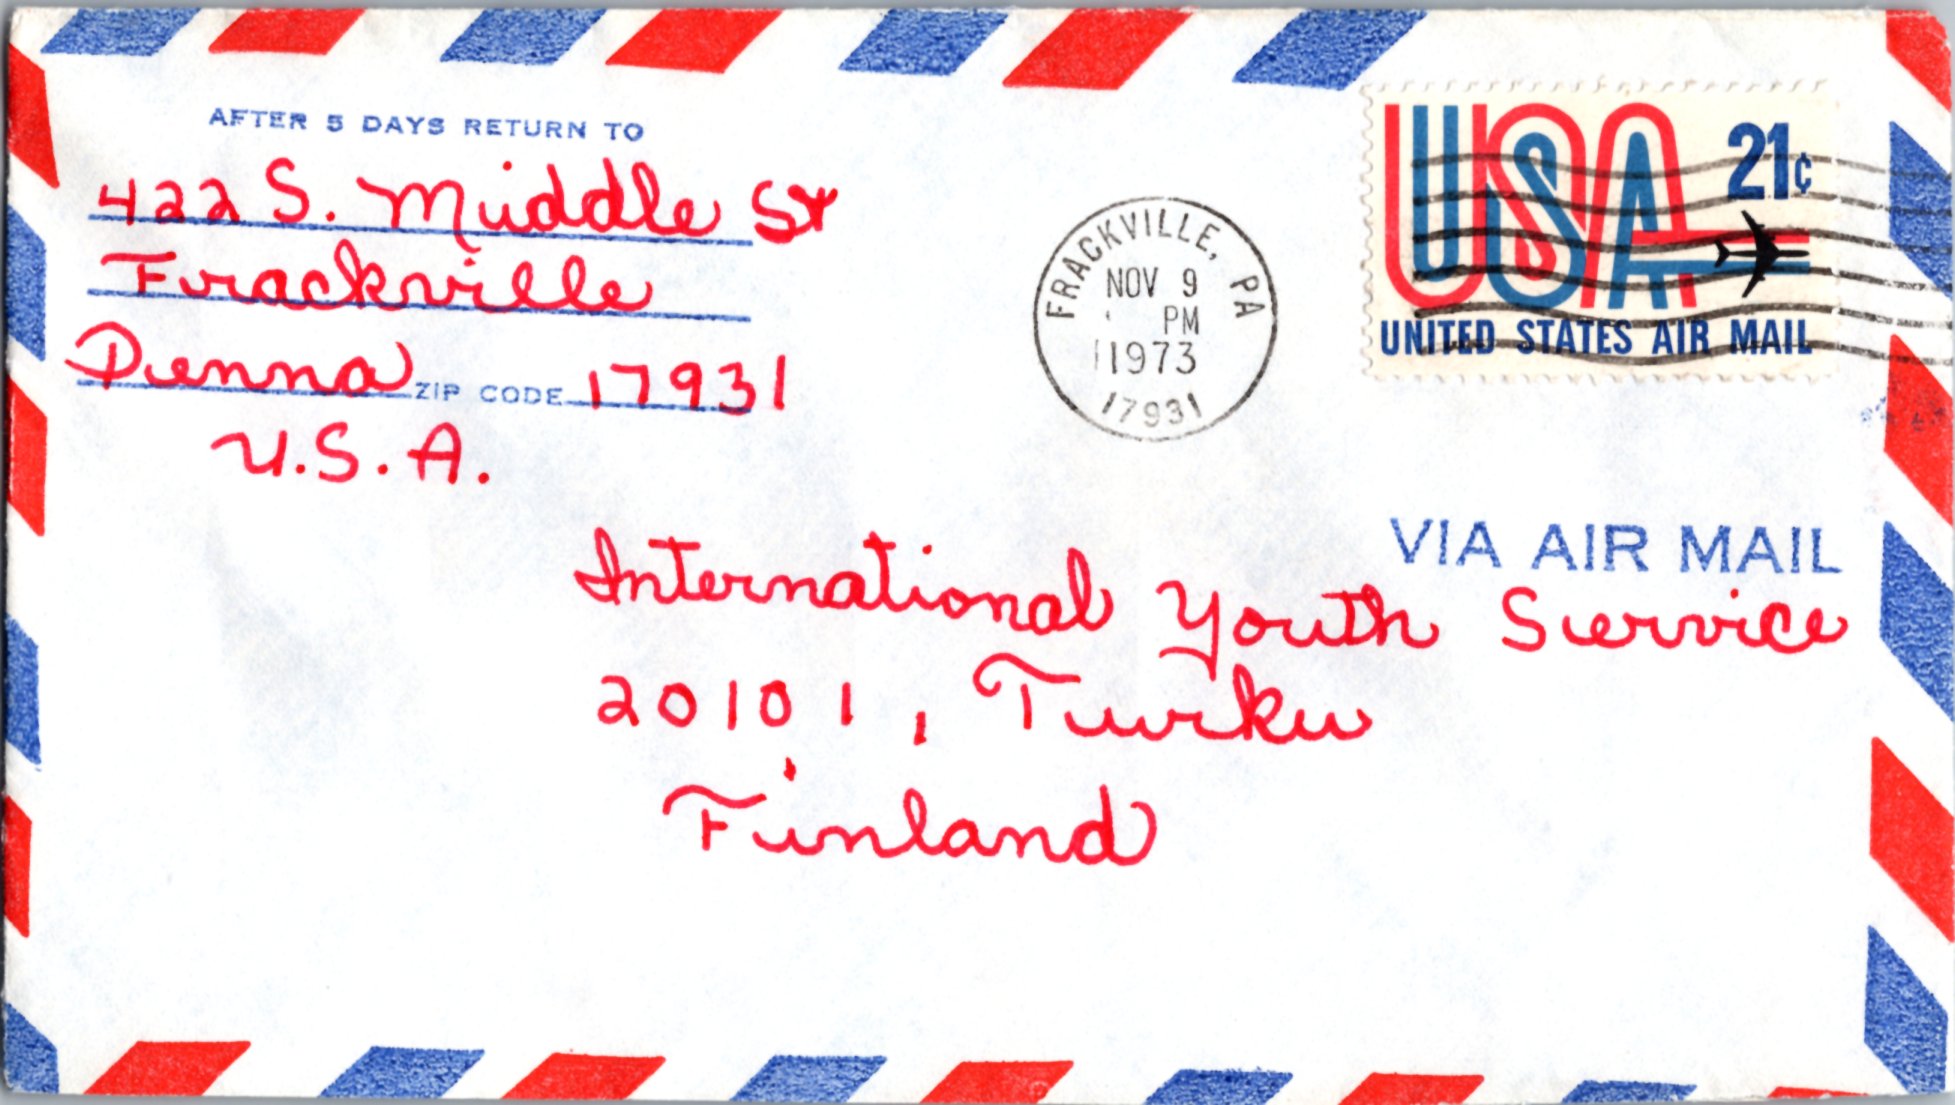 AFTER 5 DAYS RETURN TO
422 S. Middle St
Frackville
Penna ZIP CODE 17931
U.S.A.
FRACKVILLE, PA
NOV 9
PM
1973
17931
USA 21¢
UNITED STATES AIR MAIL
VIA AIR MAIL
International Youth Service
20101, Turku
Finland